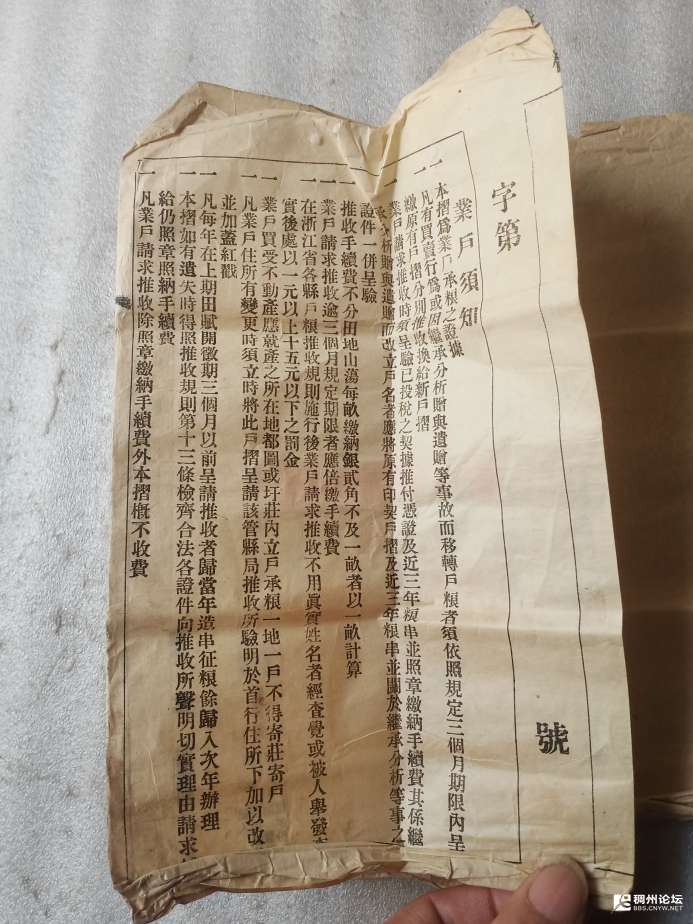 字第
號
業戶須知
一本摺爲業戶承粮之證據
一凡有買賣行爲或因繼承分析贈與遺贈等事故而移轉戶粮者須依照規定三個月期限內呈
繳原有戶摺分別推收換給新戶摺
一業戶請求推收時須呈驗已投稅之契據推付憑證及近三年粮串並照章繳納手續費其係繼
承分析贈與遺贈而改立戶名者應將原有印契戶摺及近三年粮串並關於繼承分析等事之
證件一併呈驗
一推收手續費不分田地山蕩每畝繳納銀貳角不及一畝者以一畝計算
一業戶請求推收逾三個月規定期限者應倍繳手續費
一在浙江省各縣戶粮推收規則施行後業戶請求推收不用眞實姓名者經查覺或被人舉發
實後處以一元以上十五元以下之罰金
一業戶買受不動產應就產之所在地都圖或圩莊內立戶承粮一地一戶不得寄莊寄戶
一凡業戶住所有變更時須立時將此戶摺呈請該管縣局推收所驗明於首行住所下加以改
並加蓋紅戳
一凡每年在上期田賦開徵期三個月以前呈請推收者歸當年造串征粮餘歸入次年辦理
一本摺如有遺失時得照推收規則第十三條檢齊合法各證件向推收所聲明切實理由請求
給仍照章照納手續費
一凡業戶請求推收除照章繳納手續費外本摺概不收費
稠州论坛
BBS.CNYW.NET